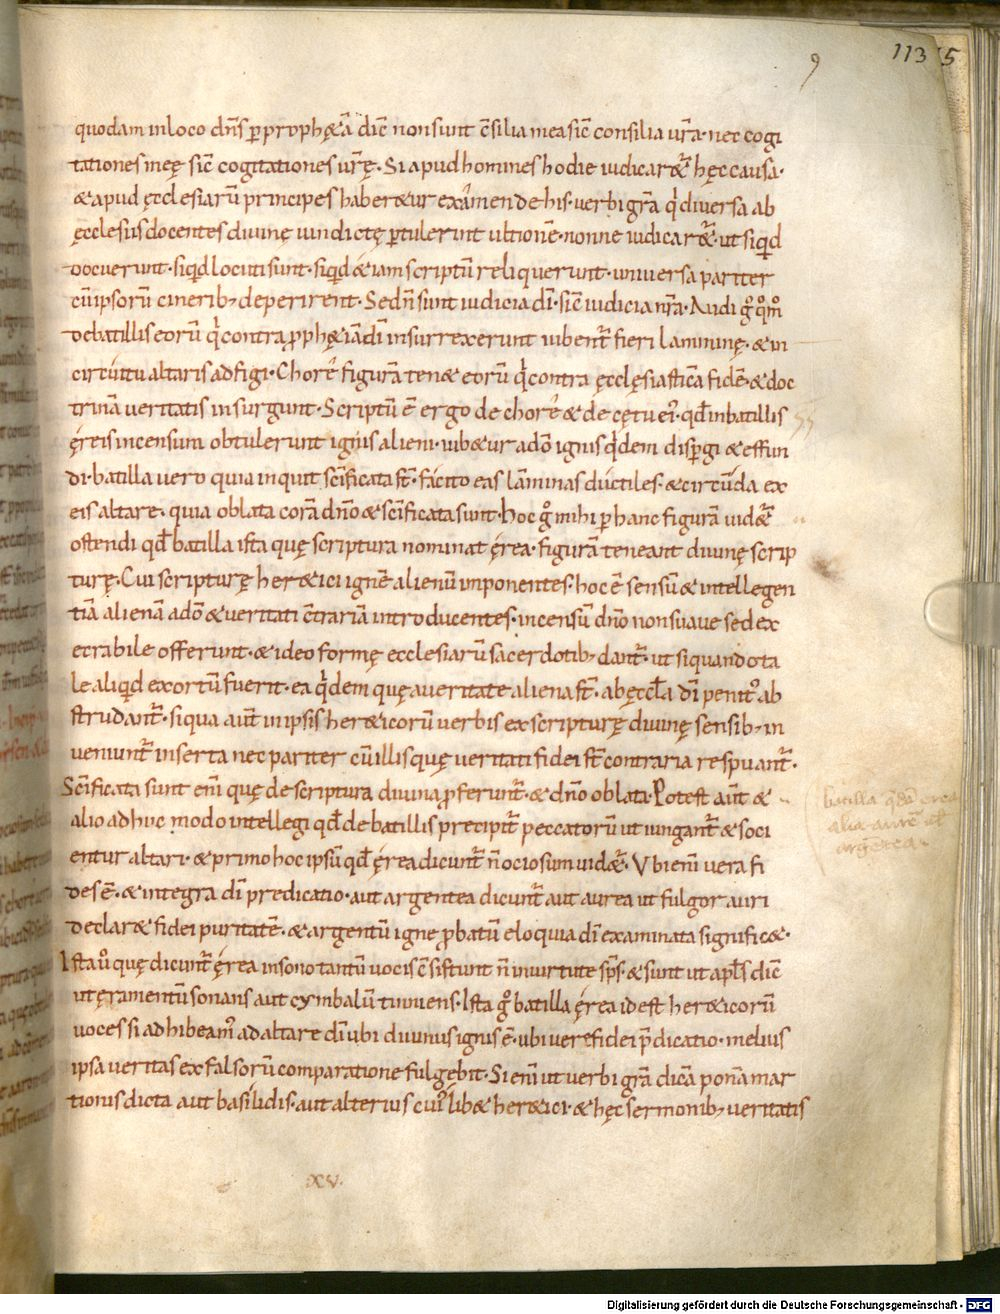 113 5
quodam inloco dn̄s ꝑ pro phęt̄a dic̄ non sunt c̄silia mea sic̄ consilia ur̄a· nec cogi
tationes meę sic̄ cogitationes ur̄ę· Si apud homines hodie iudicar&̄ hęc causa·
& apud ęcclesiarū principes haber&ur exámen de his· uerbi gr̄a q̇ diuersa ab
ęcclesiis docentes diuinę uindictę ꝑtulerint ultionē· nonne iudicar&̄· ut siqd̄
docuerunt· siqd̄ locuti sunt· siqd̄ &iam scriptū reliquerunt· uniuersa pariter
cū ipsorū cinerib; deperirent· Sed n̄ sunt iudicia dī· sic̄ iudicia nr̄a· Audi g̊ q̊m̊
de batillis eorū q̇ contra ꝓph&iā dī insurrexerunt iubent̄ fieri laminę· & in
circuitu altaris adfigi· Chorę́ figurā tenæ eorū q̇ contra ęcclęsiasticā fidē· & doc
trinā ueritatis insurgunt· Scriptū ē ergo de chorę́ & de cętu ei᷒· qd̄ in batillis
ęreis incensum obtulerunt ignis alieni· iub&ur a dō ignis q̇dem disꝑgi & effun
di· batilla uero quia inquit sc̄ificata sт̄· fácito eas láminas dúctiles· & circū́da ex
eis altare· quia oblata corā dn̄o & sc̄ificata sunt· hoc g̊ mihi ꝑ hanc figurā uid&̄
ostendi qd̄ batilla ista quę scriptura nominat ę́rea· figurā teneant diuinę scrip
turę· Cui scripturę her&ici ignē alienū imponentes· hoc ē sensū & intellegen
tiā alienā a dō & ueritati c̄trariā introducentes· incensū dn̄o non suaue sed ex
ecrabile offerunt· & ideo formę ecclesiarū sacerdotib; dant̄· ut si quando ta
le aliqd̄ exortū fuerit· ea q̇dem quę a ueritate aliena sт̄· ab ęccl̄a dī penit᷒ ab
strudant̄· siqua aūt in ipsis her&icorū uerbis ex scripturę diuinę sensib; in
ueniunt̄ inserta nec pariter cū illis quę ueritati fidei sт̄ contraria respuant̄·
Sc̄ificata sunt enī quę de scriptura diuina ꝓferunt̄· & dn̄o oblata· Potest aūt &
alio adhuc modo intellegi qd̄ de batillis precipit̄ peccatorū ut iungant̄ & soci
entur altari· & primo hoc ipsū qd̄ ę́rea dicunt̄ n̄ ociosum uid&̄· Vbi enī uera fi
des ē· & integra dī predicatio· aut argentea dicunt̄ aut aurea ut fulgor auri
declar& fidei puritatē· & argentū igne ꝓbatū eloquia dī examinata signific&·
Ista u̇ quę dicunt̄ ę́rea in sono tantū uocis c̄sistunt n̄ in uirtute sp̄s· & sunt ut apl̄s dic̄
ut ęramentū sonans aut cymbalū tinniens· Ista g̊ batilla ę́rea id est her&icorū
uoces si adhibeam᷒ ad altare dī ubi diuinus ignis ē· ubi uerę fidei p̄dicatio· melius
ipsa ueritas ex falsorū comparatione fulgebit· Si enī ut uerbi gr̄a dicā ponā mar
tionis dicta aut basílidis· aut alterius cui᷒lib& her&ici· & hęc sermonib; ueritatis
batilla q̄dā erea
alia aureā ul̄
argētea·
xv·
Digitalisierung gefördert durch die Deutsche Forschungsgemeinschaft - DFG